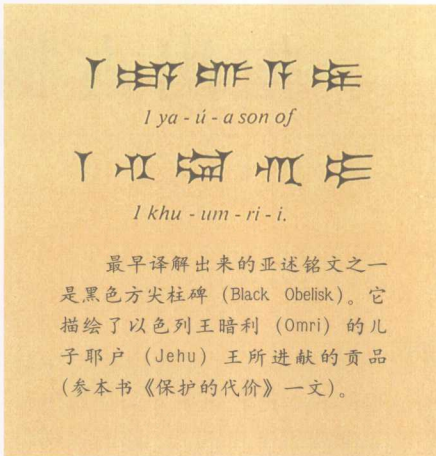 1 ya - ú - a son of
1 khu - um - ri - i.
最早译解出来的亚述铭文之一
是黑色方尖柱碑 (Black Obelisk)。它
描绘了以色列王暗利 (Omri) 的儿
子耶户 (Jehu) 王所进献的贡品
(参本书《保护的代价》一文)。